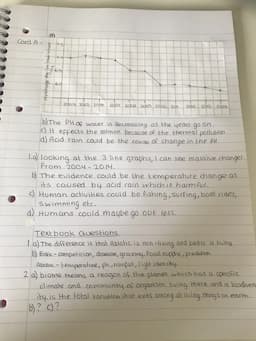 Card A -
b) The PH of water is decreasing as the years go on.
c) It effects the salmon because of the thermal pollution
d) Acid rain could be the cause of change in the PH
1.a) looking at the 3 line graphs, I can see massive changes
from 2004 - 2014.
b) The evidence could be the temperature change as
its caused by acid rain which is harmful.
c) Human activities could be fishing, surfing, boat rides,
swimming etc.
d) Humans could maybe go out less.
Textbook Questions
1 a) The difference is that Abiotic is non-living and biotic is living
b) Biotic - competition, disease, grazing, food supply, predation
Abiotic - temperature, pH, rainfall, light intensity
2 a) biome means a region of the planet which has a specific
climate and community of organism living there and a biodivers
ity is the total variation that exists among all living things on earth.
b) ? c) ?